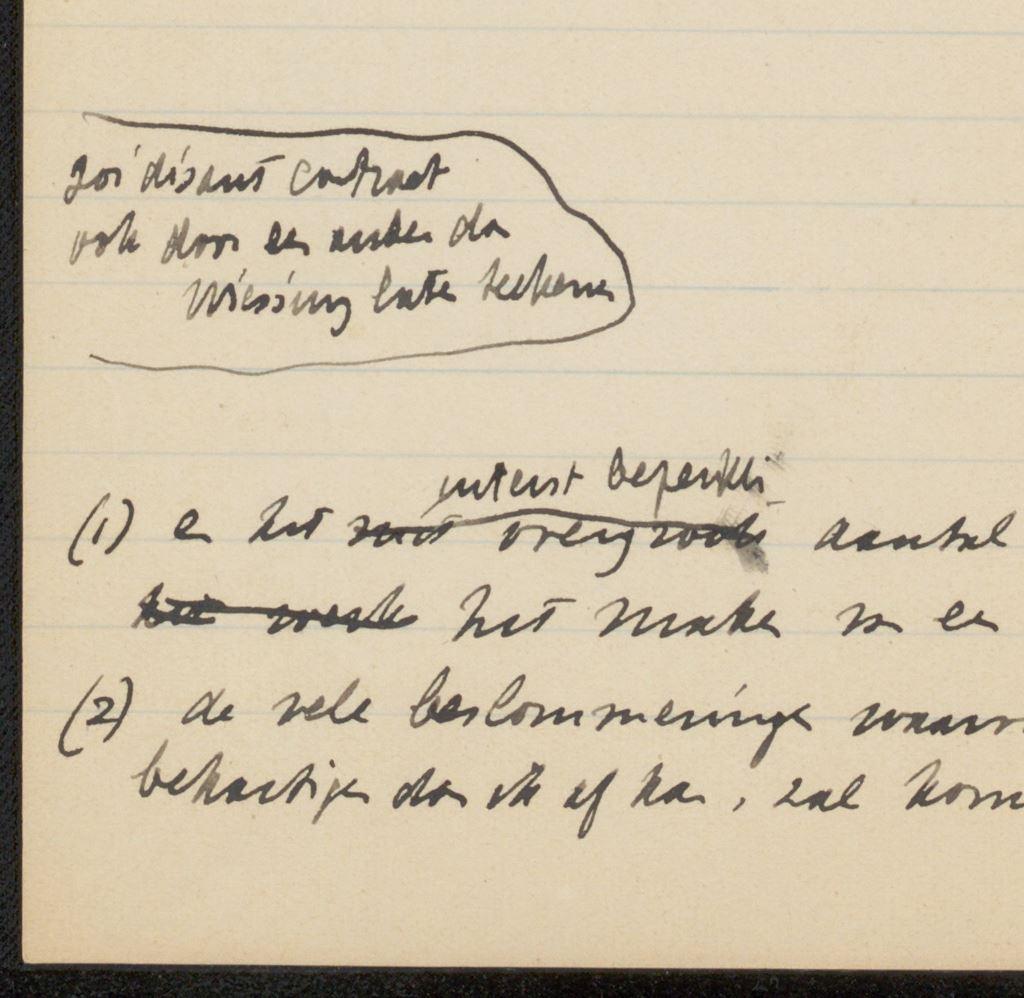 soi disant contract
ook door een ander dan
Wiessing laten teekenen
uiterst beperkte
(1) en het niet overgroote aantal
het werk het maken van een
(2) de vele beslommeringen waarv
behartigen dan ik af kan, zal kom